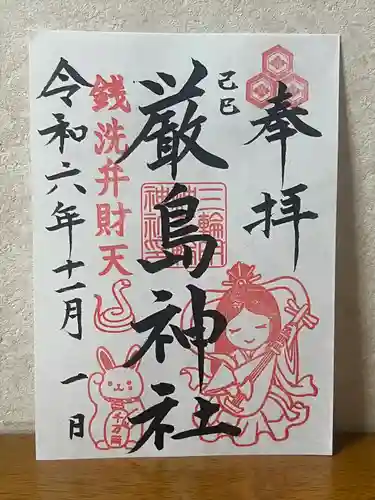 奉拝
己巳
厳島神社
三輪神社
銭洗弁財天
令和六年十一月一日